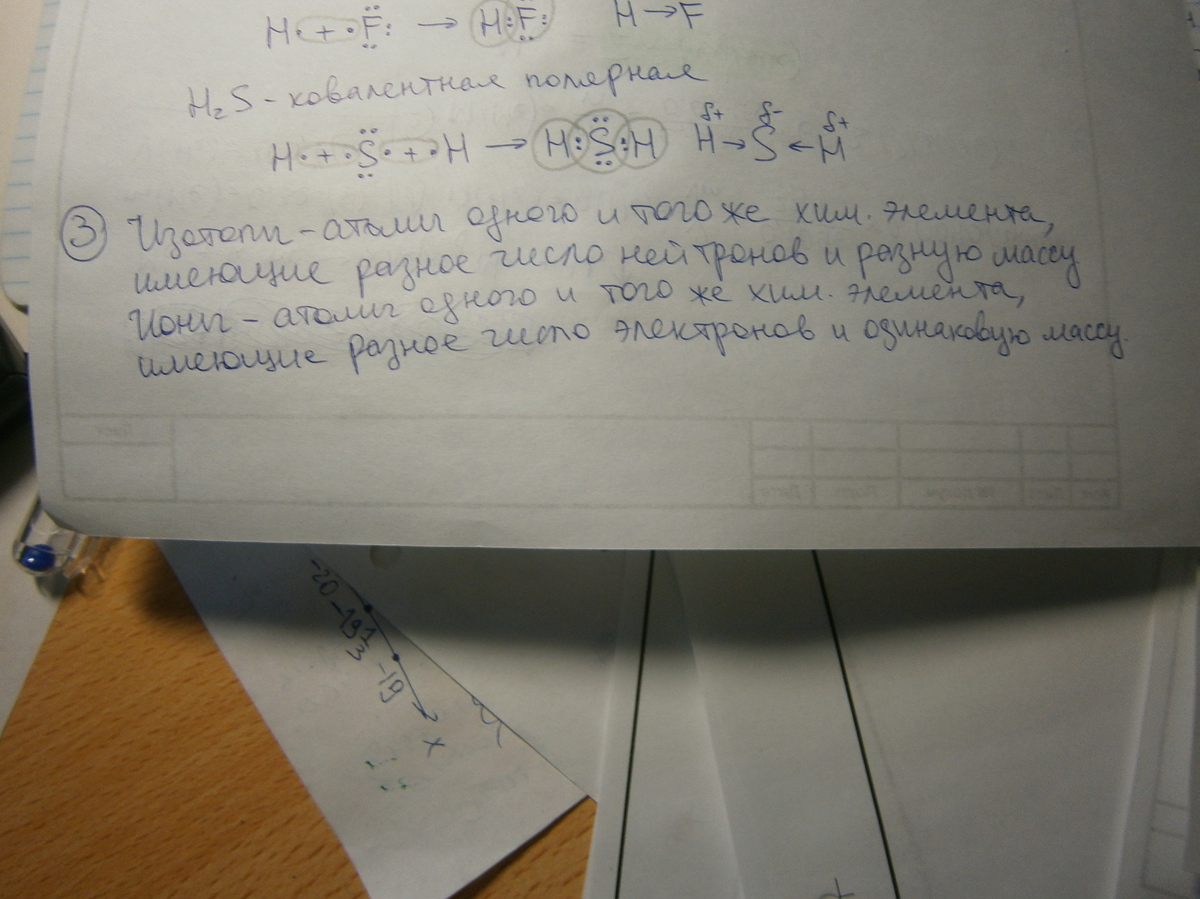 H· + ·F: → H:F: H→F
H₂S - ковалентная полярная
H· + ·S· + ·H → H:S:H H→S←H
δ+ δ- δ+
③ Изотопы - атомы одного и того же хим. элемента,
имеющие разное число нейтронов и разную массу
Ионы - атомы одного и того же хим. элемента,
имеющие разное число электронов и одинаковую массу.
-20 -19 1/3 -19
x